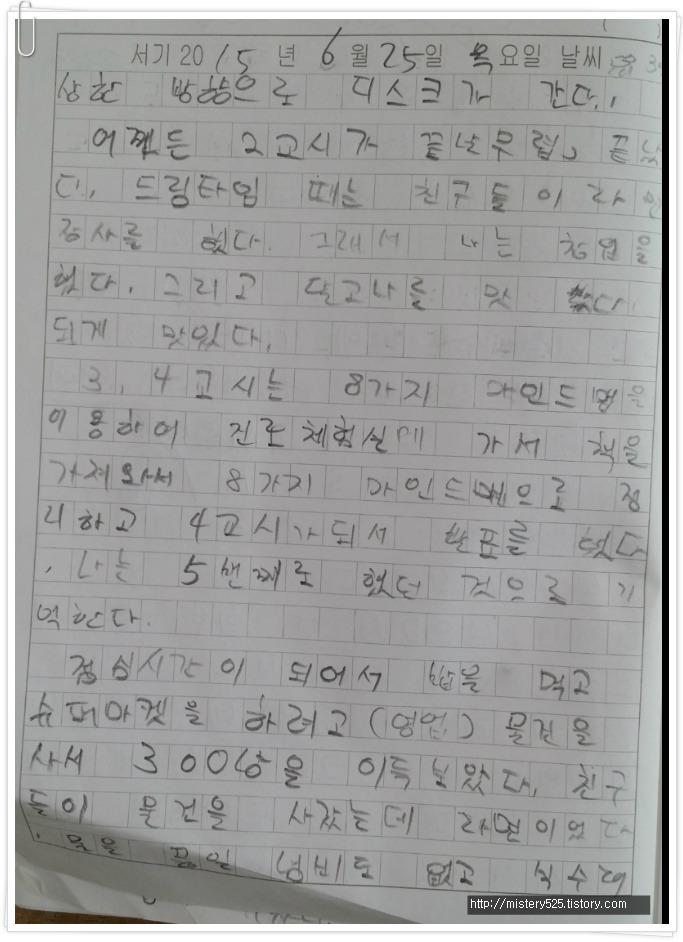 서기 2015년 6월 25일 목요일 날씨
상한 방향으로 디스크가 간다.
어쨌든 2교시가 끝난무렵, 끝났
다. 드림타임 때는 친구들이 라면
장사를 했다. 그래서 나는 창업을
했다. 그리고 달고나를 맛 봤다.
되게 맛있다.
3, 4교시는 8가지 마인드맵을
이용하여 진로체험실에 가서 책을
가져와서 8가지 마인드맵으로 정
리하고 4교시가되서 발표를 했다
. 나는 5번째로 했던 것으로 기
억한다.
점심시간이 되어서 밥을 먹고
슈퍼마켓을 하려고(영업) 물건을
사서 300상을 이득 보았다. 친구
들이 물건을 사갔는데 라면이었다
. 없고
http://mistery525.tistory.com